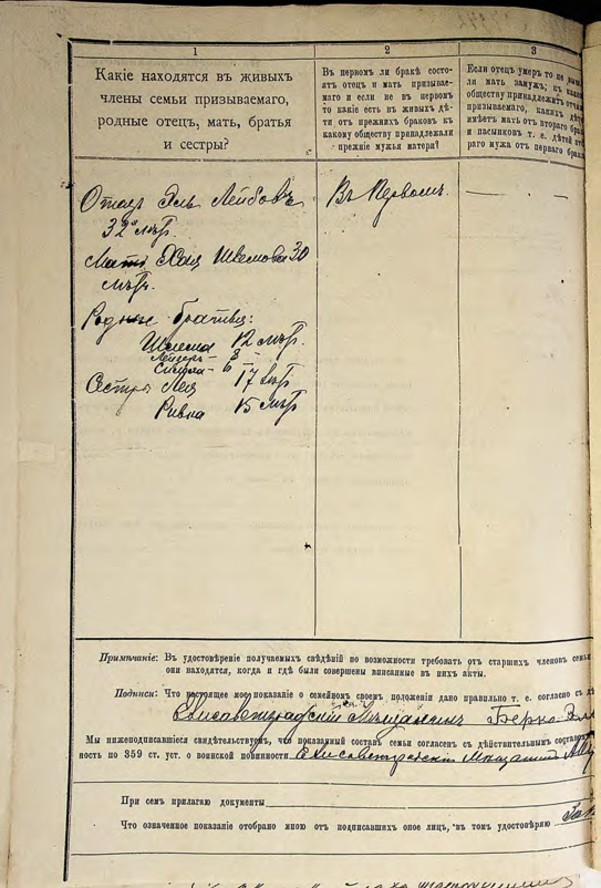 1
Какіе находятся въ живыхъ
члены семьи призываемаго,
родные отецъ, мать, братья
и сестры?
2
Въ первомъ ли бракѣ состо-
ятъ отецъ и мать призывае-
маго и если не въ первомъ
то какіе есть въ живыхъ дѣ-
ти отъ прежнихъ браковъ къ
какому обществу принадлежали
прежніе мужья матери?
3
Если отецъ умеръ то не
ли мать замужъ; къ
обществу принадлежитъ
призываемаго, какихъ
имѣетъ мать отъ втораго
и пасынковъ т. е. дѣтей
раго мужа отъ перваго
Отецъ Эль Лейбовъ
32 лѣтъ.
Мать Хая 30
лѣтъ.
Въ Первомъ.
Родные братья:
Шлема 12 лѣтъ.
Лейзеръ - 8 -
6
Сестры Лея 17 лѣтъ
Ривка 15 лѣтъ
Примѣчаніе: Въ удостовѣреніе получаемыхъ свѣдѣній по возможности требовать отъ старшихъ членовъ семьи
они находятся, когда и гдѣ были совершены вписанные въ нихъ акты.
Подписи: Что настоящее мое показаніе о семейномъ своемъ положеніи дано правильно т. е. согласно съ
Елисаветградскій Мѣщанинъ Берко
Мы нижеподписавшіеся свидѣтельствуемъ, что показанный составъ семьи согласенъ съ дѣйствительнымъ
ность по 359 ст. уст. о воинской повинности Елисаветградскій Мѣщанинъ
При семъ прилагаю документы
Что означенное показаніе отобрано мною отъ подписавшихъ оное лицъ, въ томъ удостовѣряю